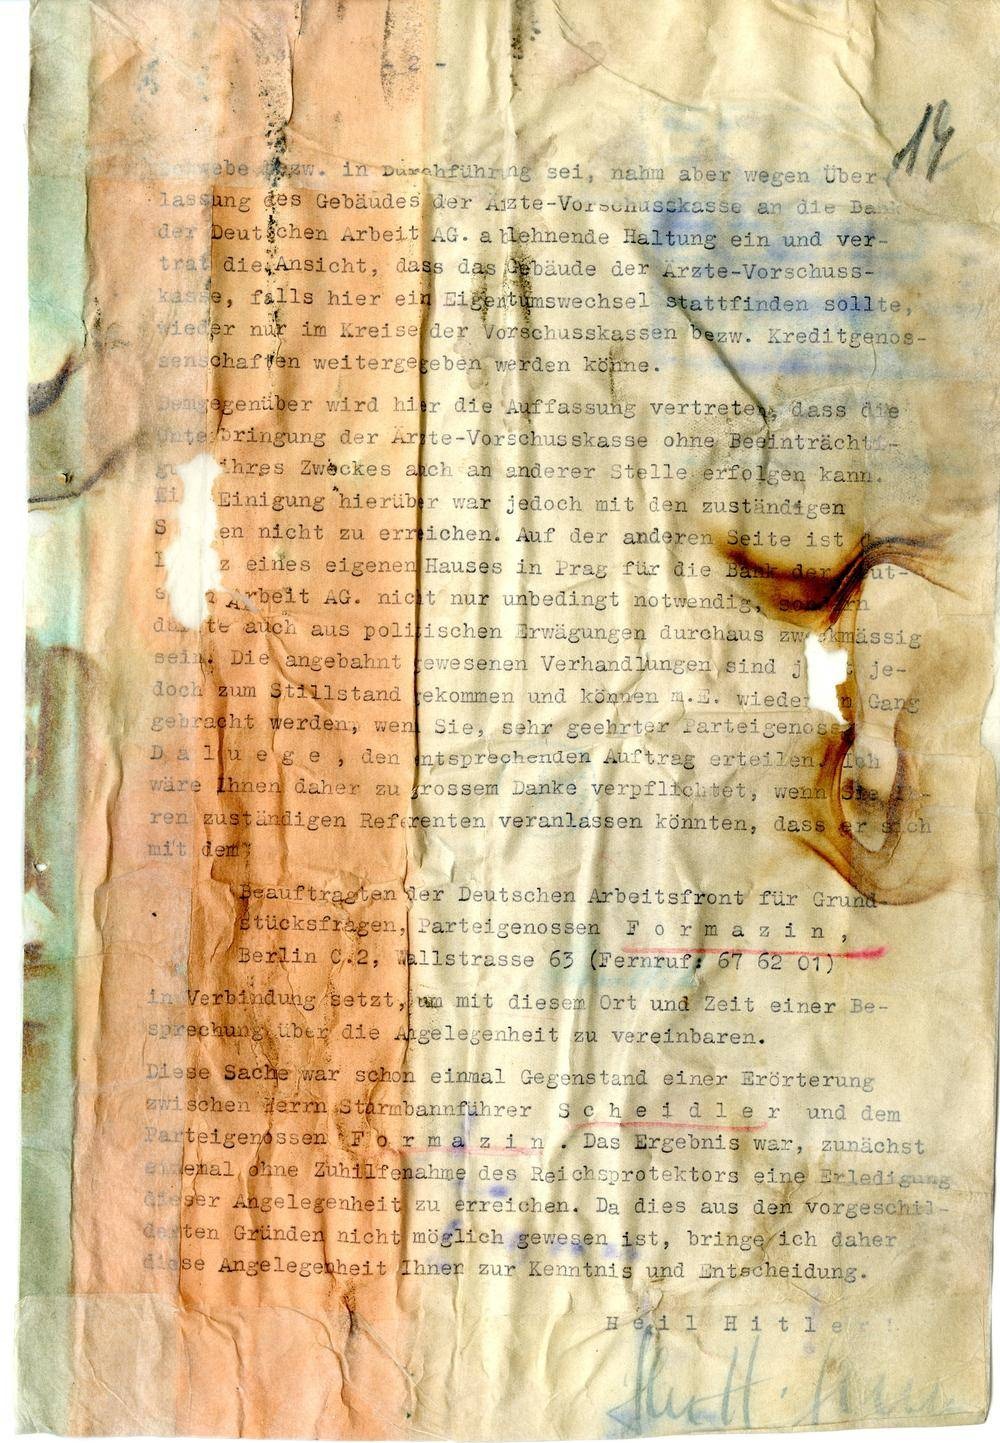 - 2 -
14
Schwebe bezw. in Durchführung sei, nahm aber wegen Über-
lassung des Gebäudes der Ärzte-Vorschusskasse an die Bank
der Deutschen Arbeit AG. ablehnende Haltung ein und ver-
trat die Ansicht, dass das Gebäude der Ärzte-Vorschuss-
kasse, falls hier ein Eigentumswechsel stattfinden sollte,
wieder nur im Kreise der Vorschusskassen bezw. Kreditgenos-
senschaften weitergegeben werden könne.
Demgegenüber wird hier die Auffassung vertreten, dass die
Unterbringung der Ärzte-Vorschusskasse ohne Beeinträchti-
ihres Zweckes auch an anderer Stelle erfolgen kann.
Einigung hierüber war jedoch mit den zuständigen
nicht zu erreichen. Auf der anderen Seite ist
eines eigenen Hauses in Prag für die Bank der Deut-
Arbeit AG. nicht nur unbedingt notwendig, sondern
dürfte auch aus politischen Erwägungen durchaus zweckmässig
sein. Die angebahnt gewesenen Verhandlungen sind jetzt je-
doch zum Stillstand gekommen und können m.E. wieder in Gang
gebracht werden, wenn Sie, sehr geehrter Parteigenosse
D a l u e g e , den entsprechenden Auftrag erteilen. Ich
wäre Ihnen daher zu grossem Danke verpflichtet, wenn Sie Ih-
ren zuständigen Referenten veranlassen könnten, dass er sich
mit dem
Beauftragten der Deutschen Arbeitsfront für Grund-
stücksfragen, Parteigenossen F o r m a z i n ,
Berlin C.2, Wallstrasse 63 (Fernruf: 67 62 01)
in Verbindung setzt, um mit diesem Ort und Zeit einer Be-
sprechung über die Angelegenheit zu vereinbaren.
Diese Sache war schon einmal Gegenstand einer Erörterung
zwischen Herrn Sturmbannführer S c h e i d l e r und dem
Parteigenossen F o r m a z i n . Das Ergebnis war, zunächst
einemal ohne Zuhilfenahme des Reichsprotektors eine Erledigung
dieser Angelegenheit zu erreichen. Da dies aus den vorgeschil-
derten Gründen nicht möglich gewesen ist, bringe ich daher
diese Angelegenheit Ihnen zur Kenntnis und Entscheidung.
H e i l H i t l e r !